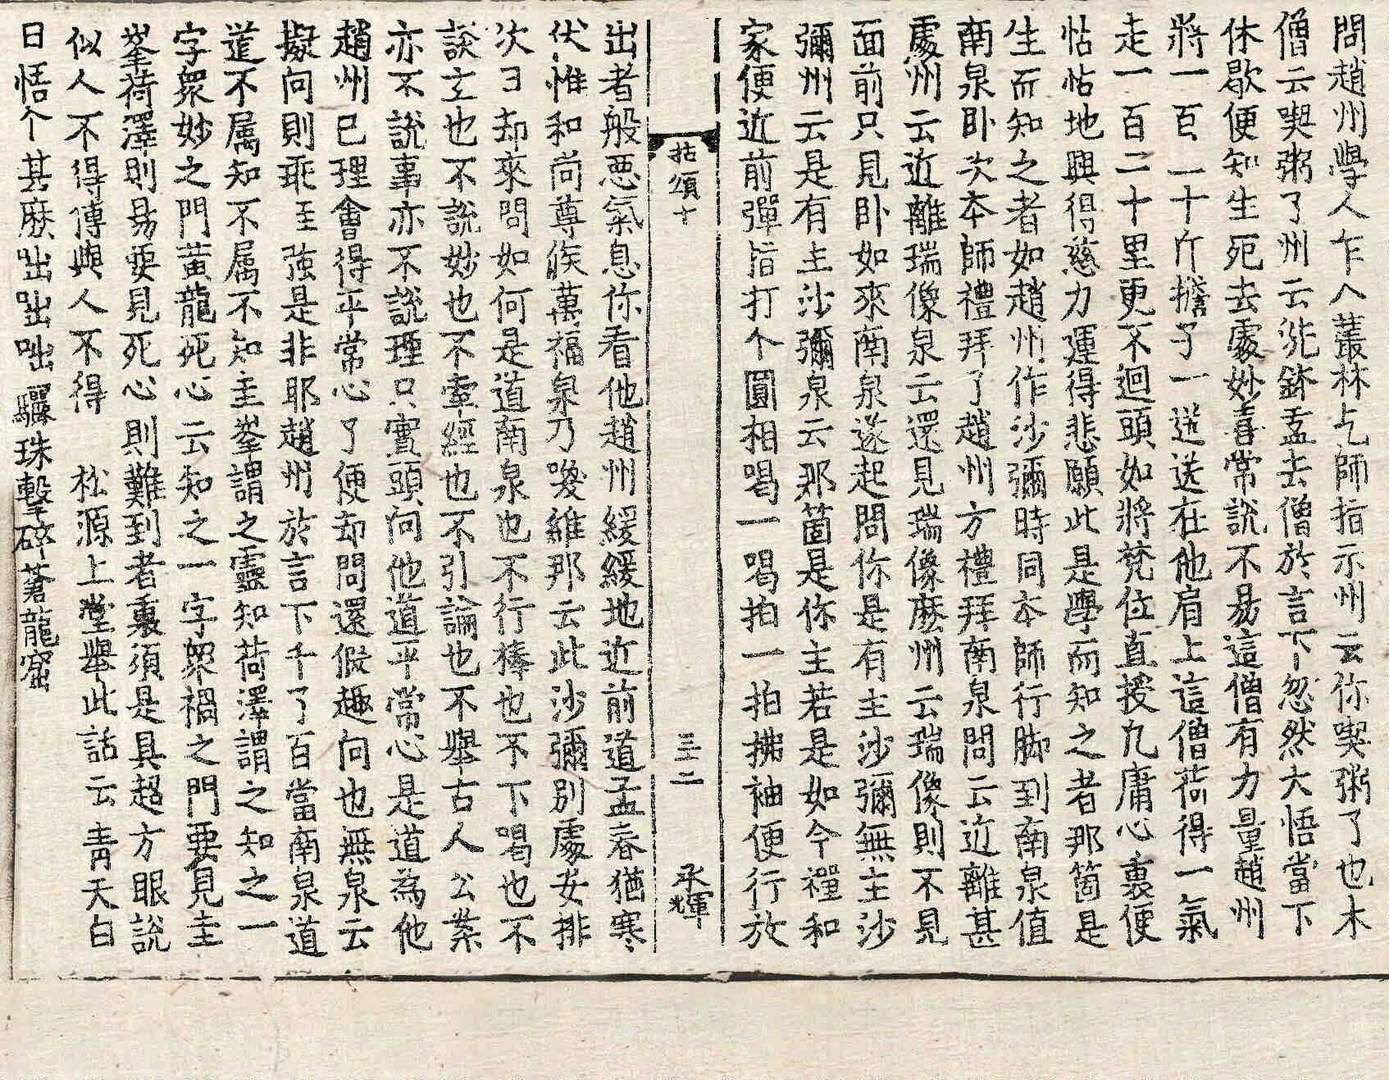 問趙州學人乍入叢林乞師指示州云你喫粥了也未
僧云喫粥了州云洗鉢盂去僧於言下忽然大悟當下
休歇便知生死去處妙喜常說不易這僧有力量趙州
將一百二十斤擔子一送送在他肩上這僧荷得一氣
走一百二十里更不迴頭如將梵位直授凡庸心裏便
怗怗地與得慈力運得悲願此是學而知之者那箇是
生而知之者如趙州作沙彌時同本師行脚到南泉值
南泉卧次本師禮拜了趙州方禮拜南泉問云近離甚
處州云近離瑞像泉云還見瑞像麽州云瑞像則不見
面前只見卧如來南泉遂起問你是有主沙彌無主沙
彌州云是有主沙彌泉云那箇是你主若是如今禪和
家便近前彈指打个圓相喝一喝拍一拍拂袖便行放
拈頌十
三十二
承輝
出者般惡氣息你看他趙州緩緩地近前道孟春猶寒
伏惟和尚尊候萬福泉乃喚維那云此沙彌別處安排
次日却來問如何是道南泉也不行棒也不下喝也不
談玄也不說妙也不牽經也不引論也不舉古人公案
亦不說事亦不說理只實頭向他道平常心是道為他
趙州已理會得平常心了便却問還假趣向也無泉云
擬向則乖至強是非耶趙州於言下千了百當南泉道
道不属知不属不知圭峯謂之靈知荷澤謂之知之一
字衆妙之門黃龍死心云知之一字衆禍之門要見圭
峯荷澤則易要見死心則難到者裏須是具超方眼說
似人不得傳與人不得 松源上堂舉此話云青天白
日悟个甚麽咄咄咄驪珠擊碎蒼龍窟